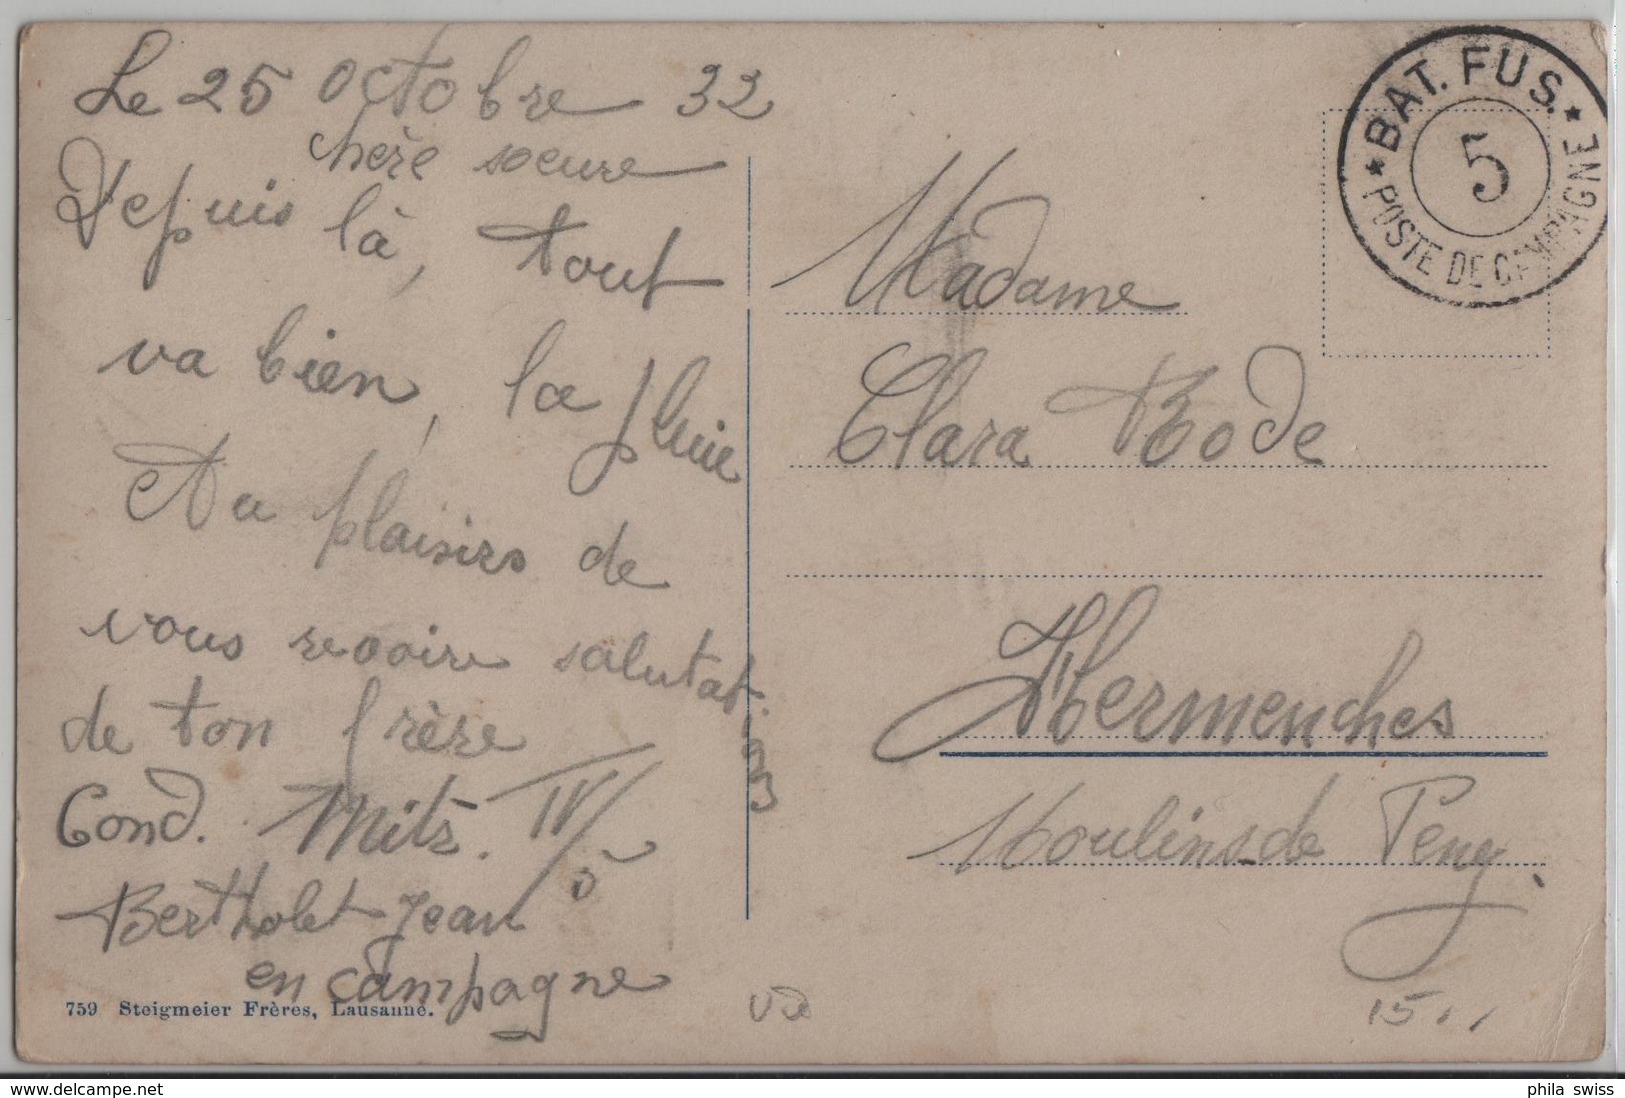 Le 25 octobre 32
chère soeure
Depuis là, tout
va bien, la pluie
Au plaisirs de
vous revoire salutations
de ton frère
Cond. Mitr. IV/5
Bertholet Jean
en campagne
759 Steigmeier Frères, Lausanne.
BAT. FUS.
5
POSTE DE CAMPAGNE
Madame
Clara Rode
Hermenches
Moulins de Peny
15.
phila swiss
www.delcampe.net